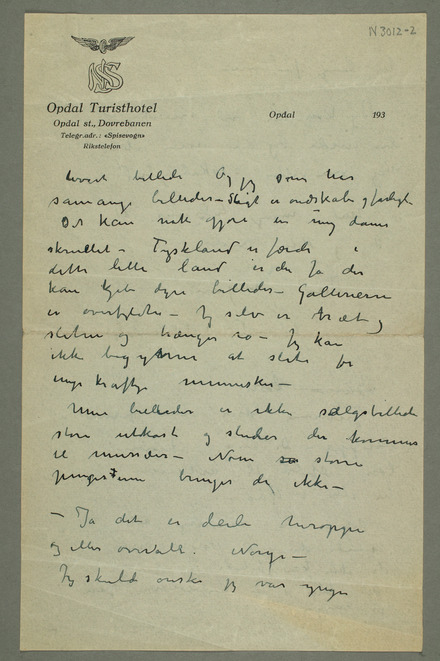 N 3012-2
NSS
Opdal Turisthotel
Opdal st., Dovrebanen
Telegr.adr.: «Spisevogn»
Rikstelefon
Opdal 193
hvert billede Og jeg som har
så mange billeder – Sligt er ondskabs
Det kan nok gjøre en ung dame
– Tyskland er færdi i
dette lille land er der få der
kan kjøbe dyre billeder – Gallerierne
er – Jeg selv er træt og
sliten og trænger ro – Jeg kan
ikke begynne at slite for
unge kraftige mennesker –
Mine billeder er ikke salgsbilleder
store utkast og studier der kommer
til museer – Noen større
penger bringer de ikke –
– Ja det er deilig heroppe
og ellers overalt i Norge –
Jeg skulde ønske jeg var yngre